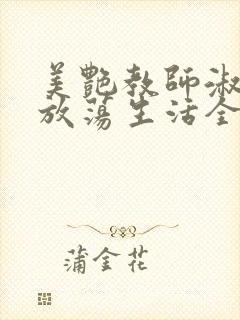 美艷教師淑
放蕩生活全
蒲金花